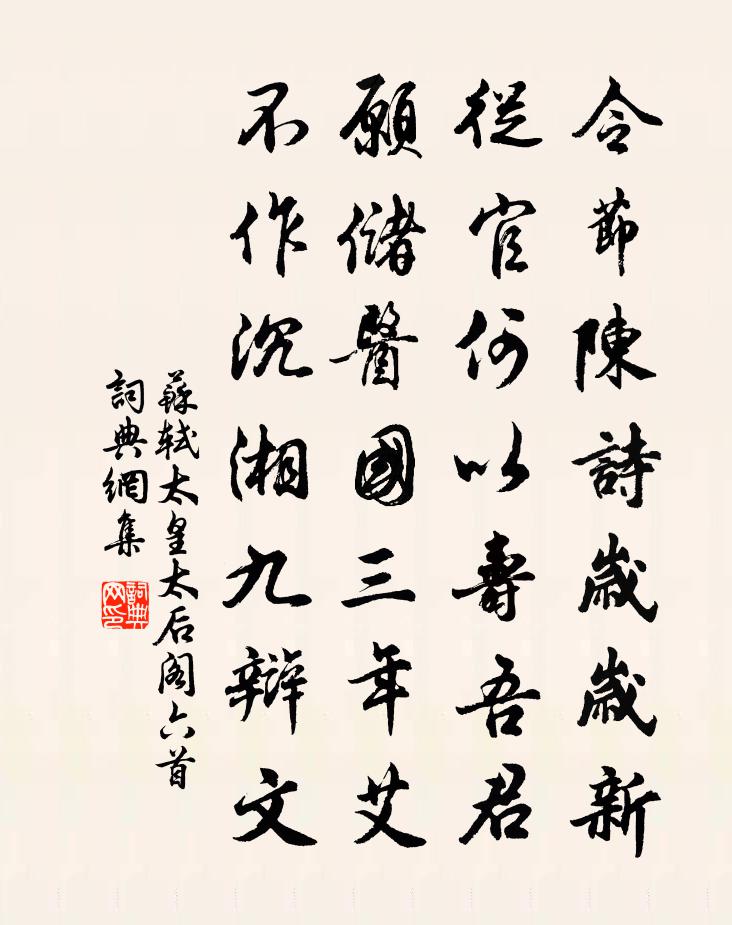 令節陳詩歲歲新
從官何以壽吾君
願儲醫國三年艾
不作沉湘九辯文
蘇軾太皇太后閣六首
詞典網集
詞典网印